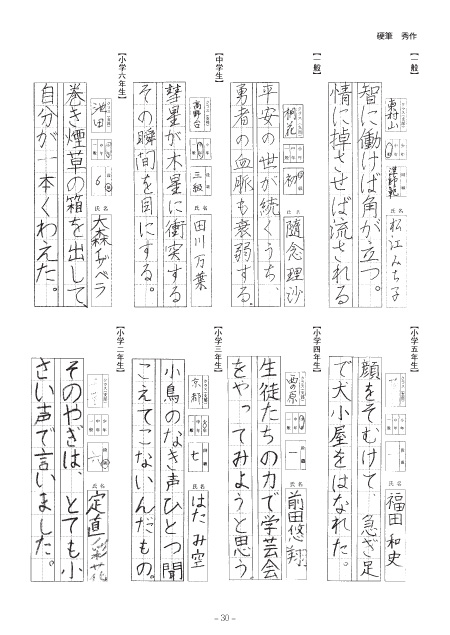 硬筆　秀作
【一般】
東村山
氏名
松江みち子
智に働けば角が立つ。
情に掉させば流される
【一般】
桐花
初
氏名
隨念理沙
平安の世が続くうち、
勇者の血脈も衰弱する。
【中学生】
高野台
三級
氏名
田川万葉
彗星が木星に衝突する
その瞬間を目にする。
【小学六年生】
池田
6
氏名
大森イザベラ
巻き煙草の箱を出して、
自分が一本くわえた。
【小学五年生】
氏名
福田和史
顔をそむけて、急ぎ足
で犬小屋をはなれた。
【小学四年生】
西の原
一
氏名
前田悠翔
生徒たちの力で学芸会
をやってみようと思う。
【小学三年生】
京都
七
氏名
はたみ空
小鳥のなき声ひとつ聞
こえてこないんだもの。
【小学二年生】
六
氏名
定直
そのやぎは、とても小
さい声で言いました。
- 30 -